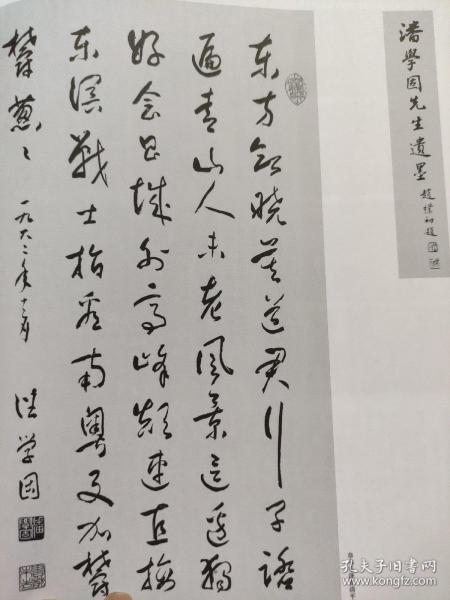 潘學固先生遺墨
趙樸初題
东方欲晓莫道君行早踏
遍青山人未老风景这边独
好会昌城外高峰颠连直接
东溟战士指看南粤更加欝
欝葱〻 一九六二年十二月 潘学固
孔夫子旧书网